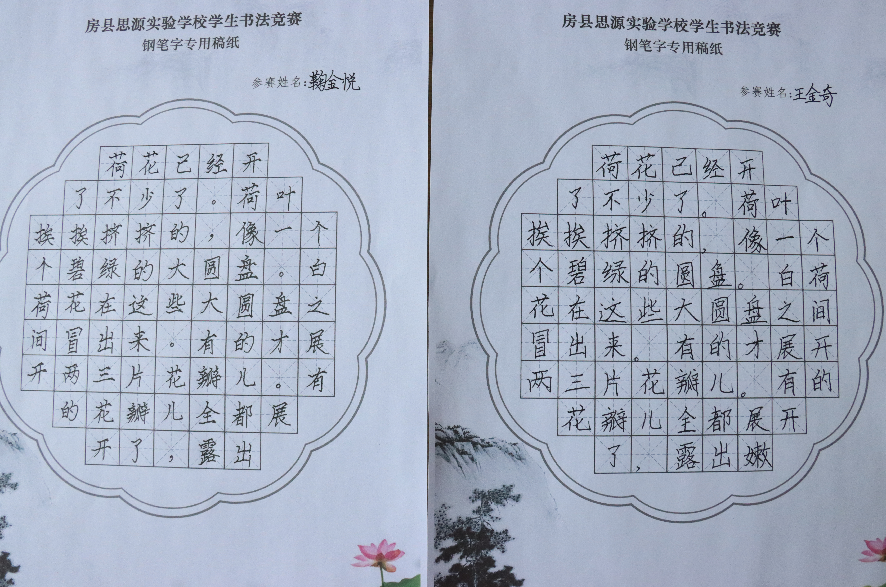 房县思源实验学校学生书法竞赛
钢笔字专用稿纸
参赛姓名:鞠金悦
荷花已经开
了不少了。荷叶
挨挨挤挤的，像一个
个碧绿的大圆盘。白
荷花在这些大圆盘之
间冒出来。有的才展
开两三片花瓣儿。有
的花瓣儿全都展
开了，露出
房县思源实验学校学生书法竞赛
钢笔字专用稿纸
参赛姓名:王金奇
荷花已经开
了不少了。荷叶
挨挨挤挤的，像一个
个碧绿的圆盘。白荷
花在这些大圆盘之间
冒出来。有的才展开
两三片花瓣儿。有的
花瓣儿全都展开
了，露出嫩